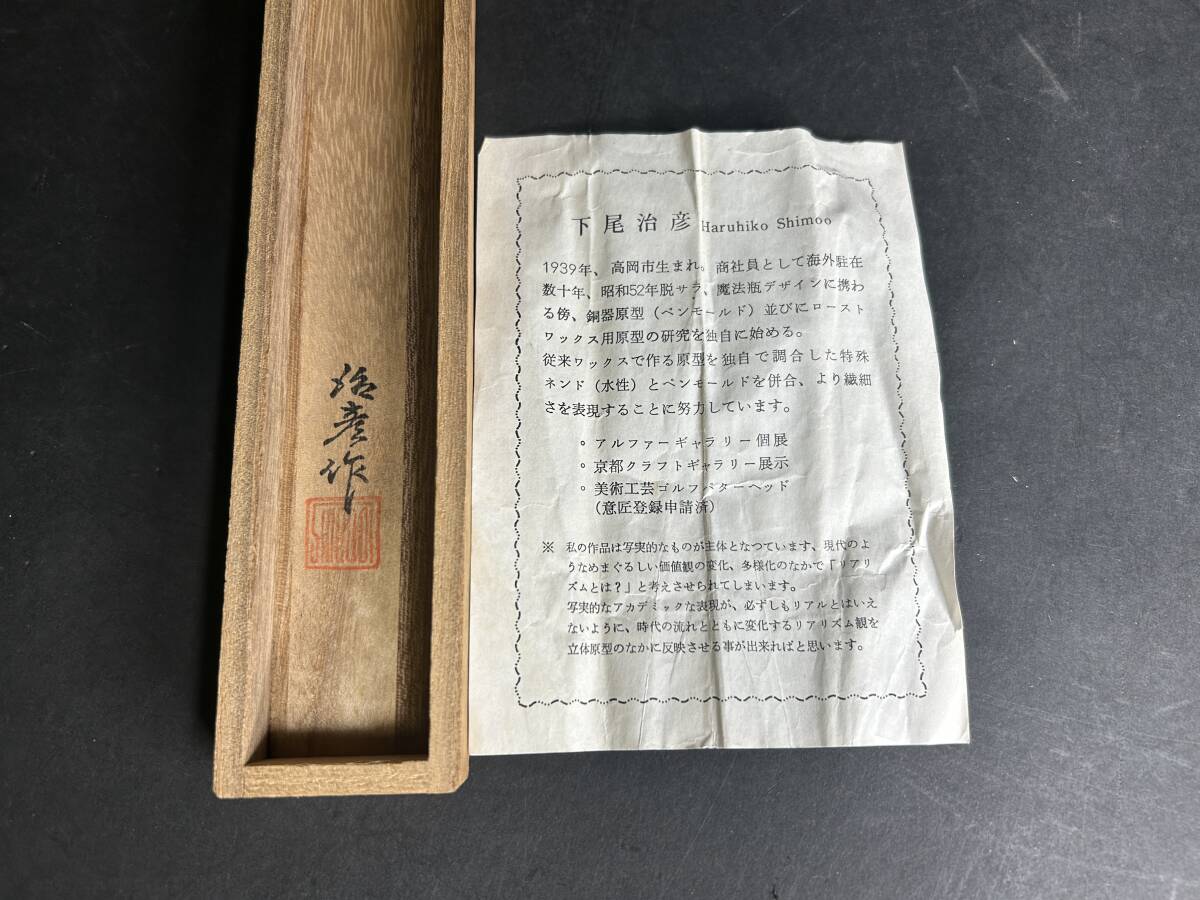 治彦作
SHIMOO
下尾治彦 Haruhiko Shimoo
1939年、高岡市生まれ。商社員として海外駐在
数十年、昭和52年脱サラ、魔法瓶デザインに携わ
る傍、銅器原型（ペンモールド）並びにロースト
ワックス用原型の研究を独自に始める。
従来ワックスで作る原型を独自で調合した特殊
ネンド（水性）とペンモールドを併合、より繊細
さを表現することに努力しています。
◦ アルファーギャラリー個展
◦ 京都クラフトギャラリー展示
◦ 美術工芸ゴルフパターヘッド
（意匠登録申請済）
※ 私の作品は写実的なものが主体となつています、現代のよ
うなめまぐるしい価値観の変化、多様化のなかで「リアリ
ズムとは？」と考えさせられてしまいます。
写実的なアカデミックな表現が、必ずしもリアルとはいえ
ないように、時代の流れとともに変化するリアリズム観を
立体原型のなかに反映させる事が出来ればと思います。